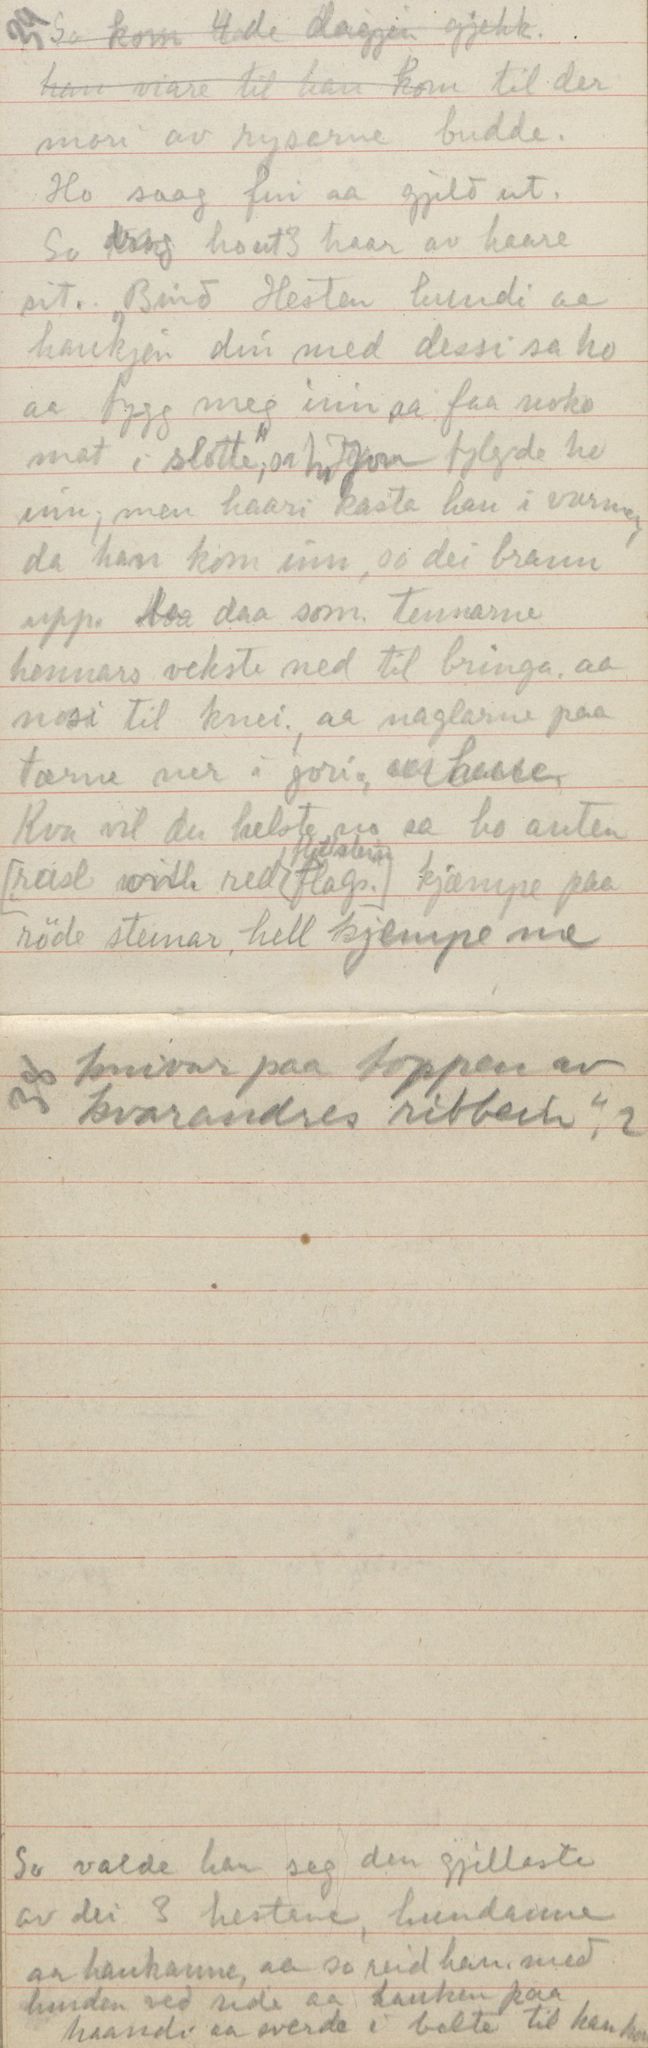 34 So kom 4de dagjen gjekk.
han viare til han kom til der
mori av rysarne budde.
Ho saag fin aa gjild ut.
So drog ho ut 3 haar av haare
sit. "Bind Hesten hundi aa
haukjen din med dessi sa ho
aa fygg meg inn aa faa noko
mat i slotte", sa ho. Jon fylgde ho
inn, men haari kasta han i varmen,
da han kom inn, so dei brann
upp. daa som tennarne
hennars vekste ned til bringa. aa
nosi til knei, aa naglarne paa
tærne ner i jori.
Kva vil du helste no sa ho anten
[rasl with red flags.] kjæmpe paa
röde steinar, hell kjempe me
35 knivar paa toppen av
kvarandres ribbein", ?
So valde han seg den gjillaste
av dei 3 hestane, hundanne
aa haukanne, aa so reid han med
hunden ved side aa hauken paa
haandi aa sverde i belte til han kom